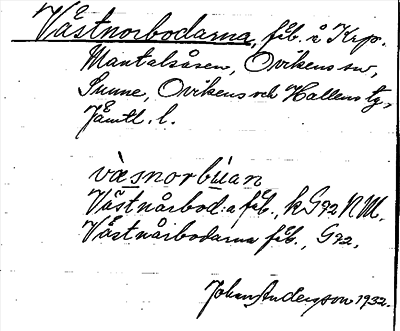 Västnorbodarna, fäb. i Krp.
Mantalsåsen, Ovikens sn,
Sunne, Ovikens och Hallens tg,
Jämtl. l.
væ̀snorbùan
Västnårbod:a fäb., k G92 N M.
Västnårbodarna fäb., G92.
Johan Anderson 1932.